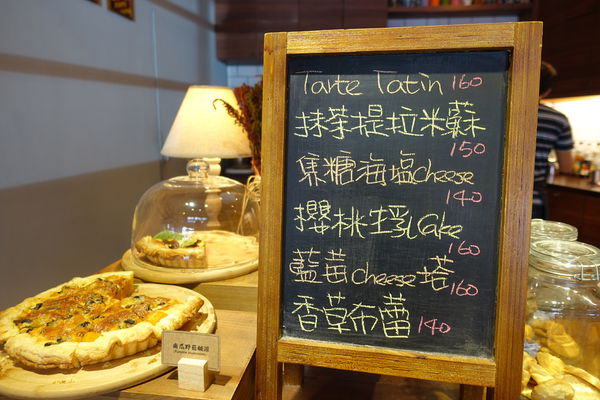 Tarte Tatin 160
抹茶提拉米蘇
150
焦糖海塩cheese
140
櫻桃生乳Cake
160
藍莓cheese塔
160
香草布蕾 140
南瓜野菇鹹派